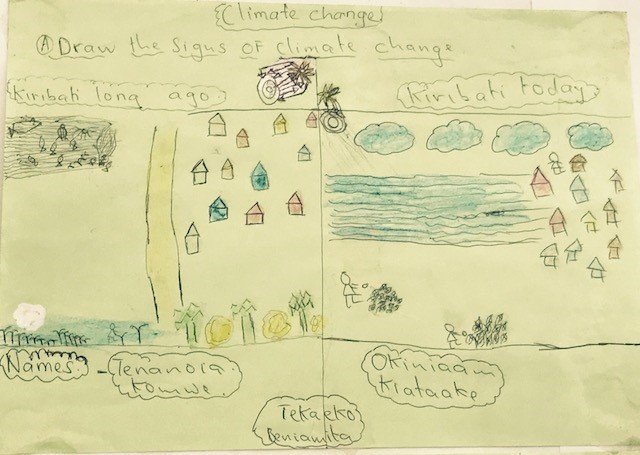 Climate change
(A) Draw the signs of climate change
Kiribati long ago.
Kiribati today
Names. - Tenanoia
Komwe.
Okiniaam
Kiataake
Tekaeko
Beniamita